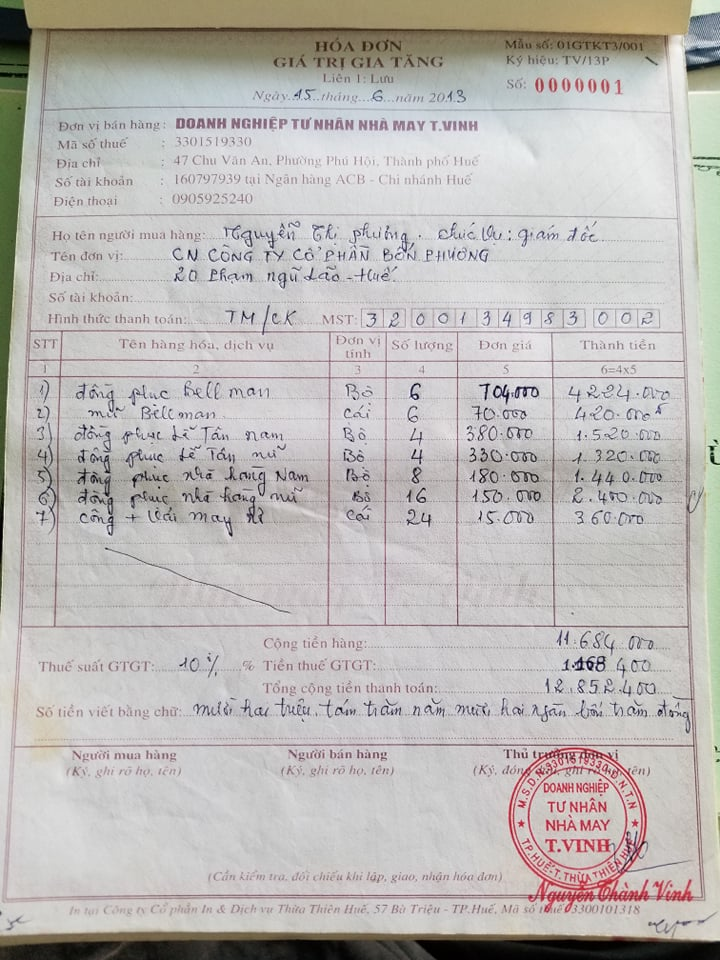 HÓA ĐƠN
GIÁ TRỊ GIA TĂNG
Liên 1: Lưu
Ngày 15 tháng 6 năm 2013
Mẫu số: 01GTKT3/001
Ký hiệu: TV/13P
Số: 0000001
Đơn vị bán hàng : DOANH NGHIỆP TƯ NHÂN NHÀ MAY T.VINH
Mã số thuế : 3301519330
Địa chỉ : 47 Chu Văn An, Phường Phú Hội, Thành phố Huế
Số tài khoản : 160797939 tại Ngân hàng ACB - Chi nhánh Huế
Điện thoại : 0905925240
Họ tên người mua hàng: Nguyễn Thị phương. chức vụ: giám đốc
Tên đơn vị: CN CÔNG TY CỔ PHẦN BỐN PHƯƠNG
Địa chỉ: 20 Phạm ngũ Lão - Huế.
Số tài khoản:
Hình thức thanh toán: TM/CK MST: 3 2 0 0 1 3 4 9 8 3 0 0 2
STT Tên hàng hóa, dịch vụ Đơn vị tính Số lượng Đơn giá Thành tiền
1 2 3 4 5 6=4x5
1) đồng phục Bell man Bộ 6 704.000 4.224.000
2) mũ Bellman Cái 6 70.000 420.000
3) đồng phục Lễ Tân nam Bộ 4 380.000 1.520.000
4) đồng phục Lễ Tân nữ Bộ 4 330.000 1.320.000
5) đồng phục nhà hàng Nam Bộ 8 180.000 1.440.000
6) đồng phục nhà hàng nữ Bộ 16 150.000 2.400.000
7) công + vải may Cái 24 15.000 360.000
Cộng tiền hàng: 11.684.000
Thuế suất GTGT: 10% % Tiền thuế GTGT: 1.168.400
Tổng cộng tiền thanh toán: 12.852.400
Số tiền viết bằng chữ: mười hai triệu, tám trăm năm mươi hai ngàn bốn trăm đồng
Người mua hàng Người bán hàng Thủ trưởng đơn vị
(Ký, ghi rõ họ, tên) (Ký, ghi rõ họ, tên) (Ký, đóng dấu, ghi rõ họ, tên)
M.S.D.N:3301519330-D.N.T.N
DOANH NGHIỆP
TƯ NHÂN
NHÀ MAY
T.VINH
TP.HUẾ-T.THỪA THIÊN HUẾ
(Cần kiểm tra, đối chiếu khi lập, giao, nhận hóa đơn)
Nguyễn Thành Vinh
In tại Công ty Cổ phần In & Dịch vụ Thừa Thiên Huế, 57 Bà Triệu - TP.Huế, Mã số thuế 3300101318